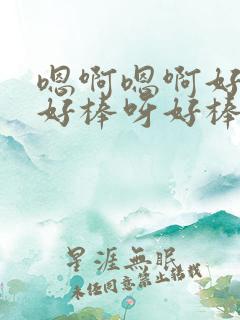 嗯啊嗯啊好
好棒呀好棒
星涯無眠
未经同意禁止转载